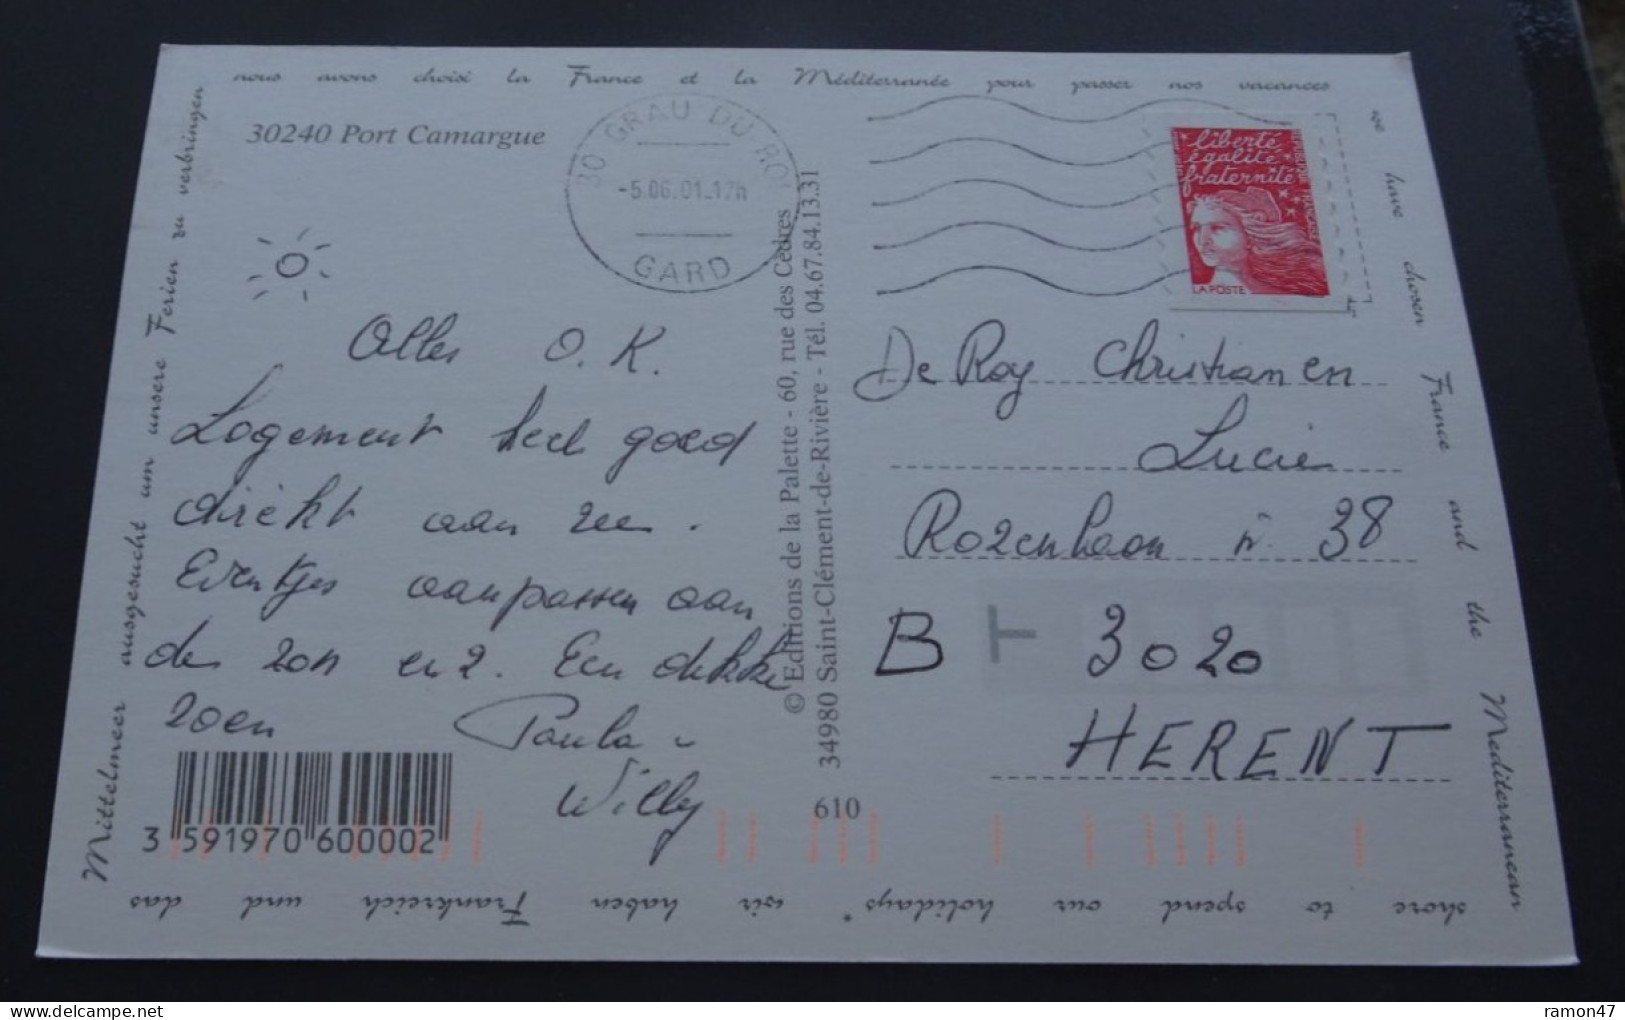 nous avons choisi la France et la Méditerranée pour passer nos vacances
we have chosen France and the Mediterranean
shore to spend our holidays * wir haben Frankreich und das
Mittelmeer ausgesucht um unsere Ferien zu verbringen
30240 Port Camargue
30 GRAU DU ROI
-5.06.01.17h
GARD
liberté
égalité
fraternité
RÉPUBLIQUE FRANÇAISE
LA POSTE
Alles O.K.
Logement heel goed
direkt aan zee.
Eventjes aanpassen aan
de zon enz. Een dikke
zoen Paula -
Willy
© Editions de la Palette - 60, rue des Cèdres
34980 Saint-Clément-de-Rivière - Tél. 04.67.84.13.31
610
De Roy Christianen
Lucie
Rozenlaan n. 38
B 3020
HERENT
3 591970 600002
delcampe.net
ramon47